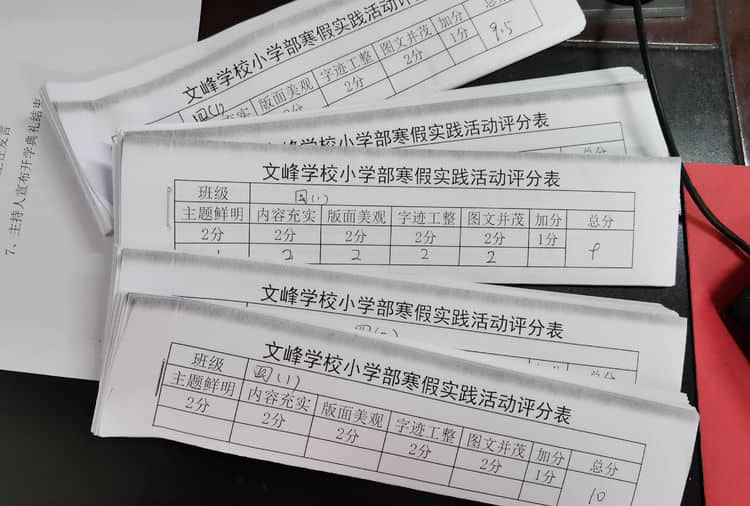 文峰学校小学部寒假实践活动评分
版面美观 字迹工整 图文并茂 加分
2分 2分 1分 9.5
文峰学校小学部寒假实践活动评分表
文峰学校小学部寒假实践活动评分表
班级 四(1)
主题鲜明 内容充实 版面美观 字迹工整 图文并茂 加分 总分
2分 2分 2分 2分 2分 1分
2 2 2 2 9
文峰学校小学部寒假实践活动评分表
文峰学校小学部寒假实践活动评分表
班级 四(1)
主题鲜明 内容充实 版面美观 字迹工整 图文并茂 加分 总分
2分 2分 2分 2分 2分 1分 10
7、主持人宣布开学典礼结束